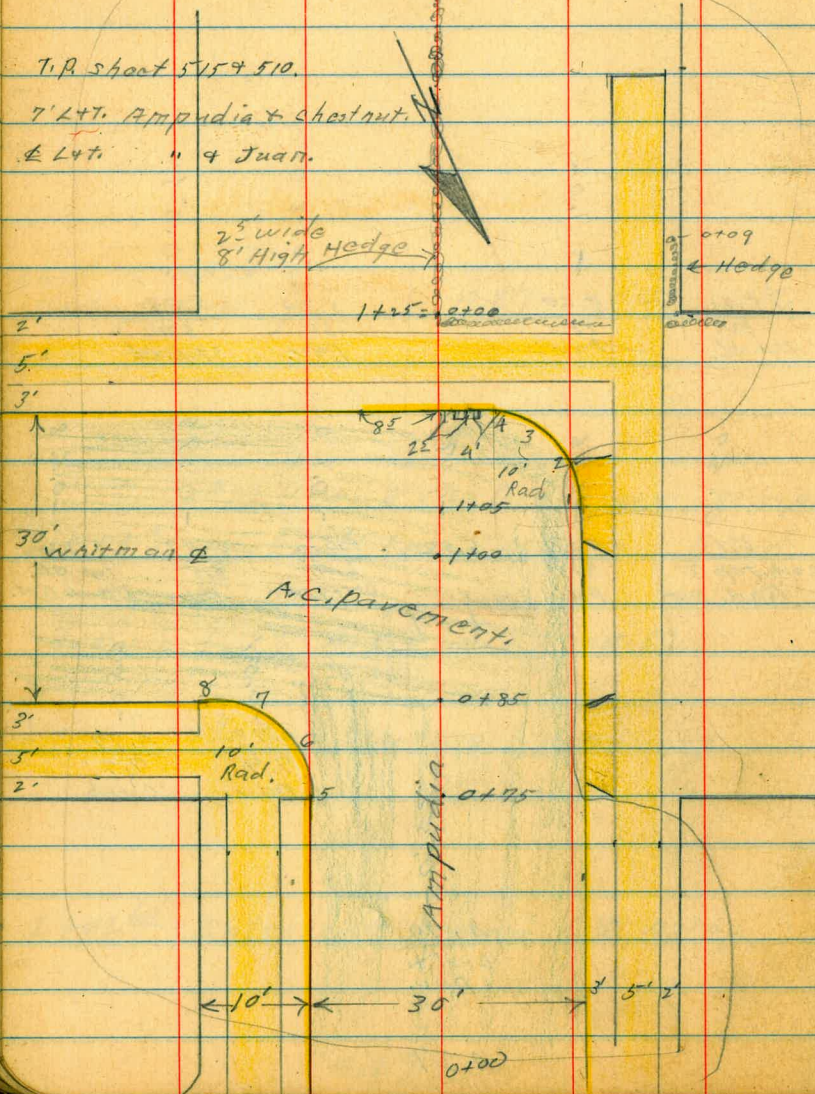 T.P. sheet 515 & 510.
7' L+T. Ampudia & Chestnut.
℄ L+T. " & Juan.
2⁵' wide
8' High Hedge
0+09
℄ Hedge
1+25= 0+00
2'
5'
3'
8⁵
2⁵
4'
4
3
2
10'
Rad
1+05
30'
Whitman ℄
1+00
A.C. pavement.
8
7
6
5
0+85
3'
5'
2'
10'
Rad.
0+75
Ampudia
10'
30'
3'
5'
2'
0+00